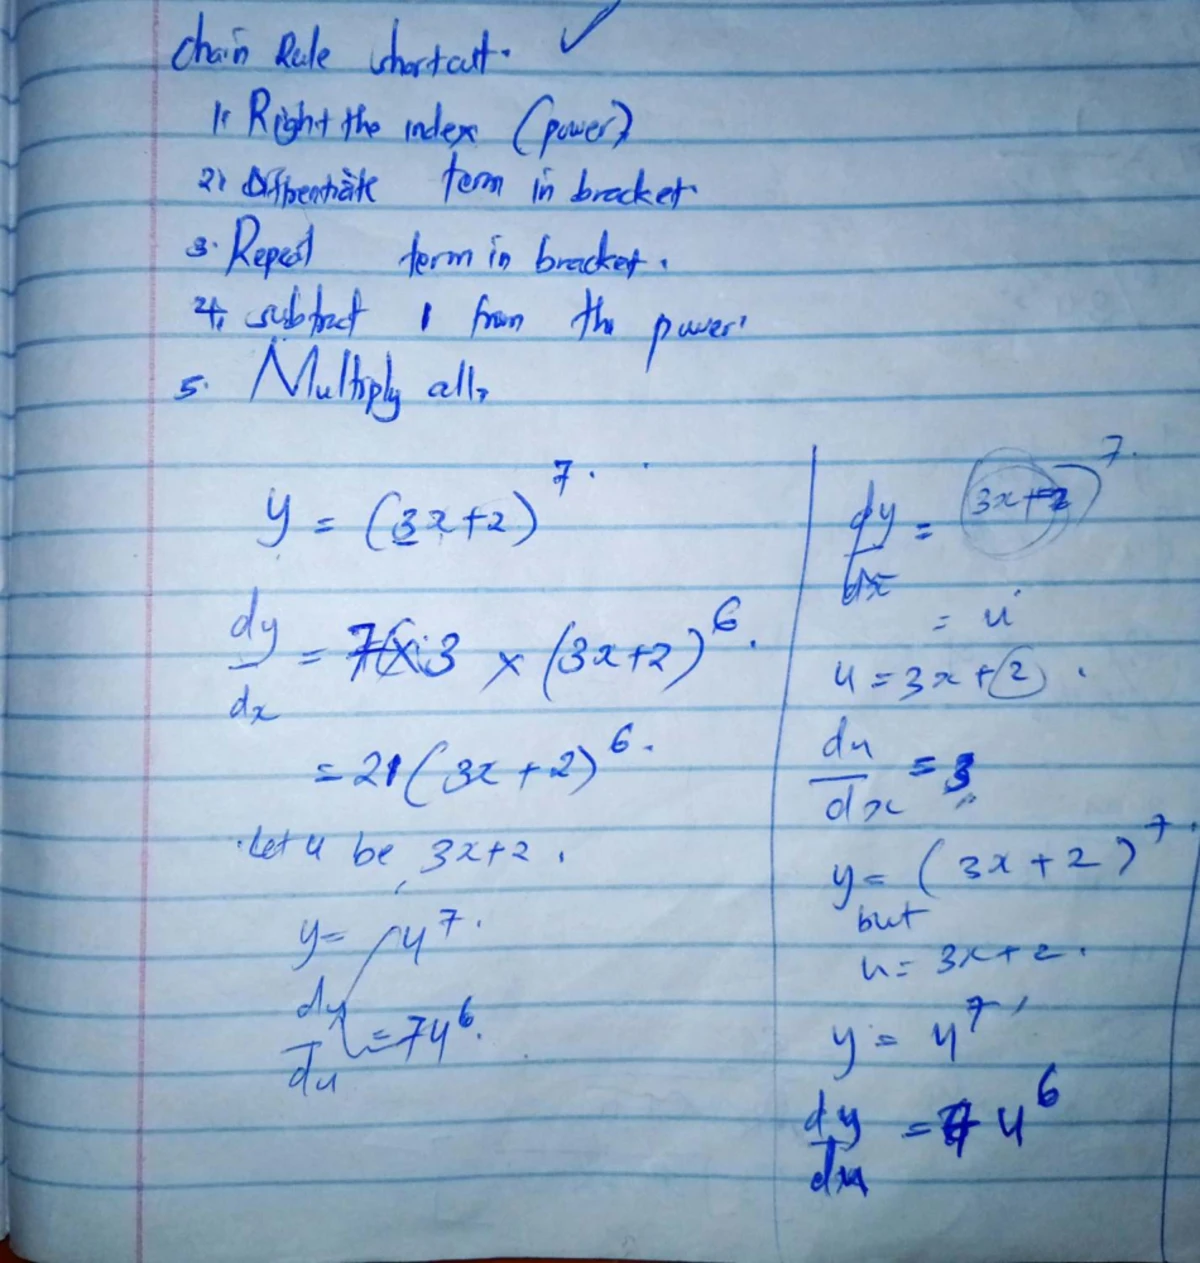 Chain Rule shortcut. ✓
1. Right the index (power)
2) Differentiate term in bracket.
3. Repeat term in bracket.
4, subtract 1 from the power.
5. Multiply all,
y = (3x+2)^7.
dy/dx = 7 x 3 x (3x+2)^6.
= 21(3x+2)^6.
Let u be 3x+2.
y = u^7.
dy/du = 7u^6.
dy/dx = (3x+2)^7.
= u
u = 3x+2.
du/dx = 3
y = (3x+2)^7.
but
u = 3x+2.
y = u^7